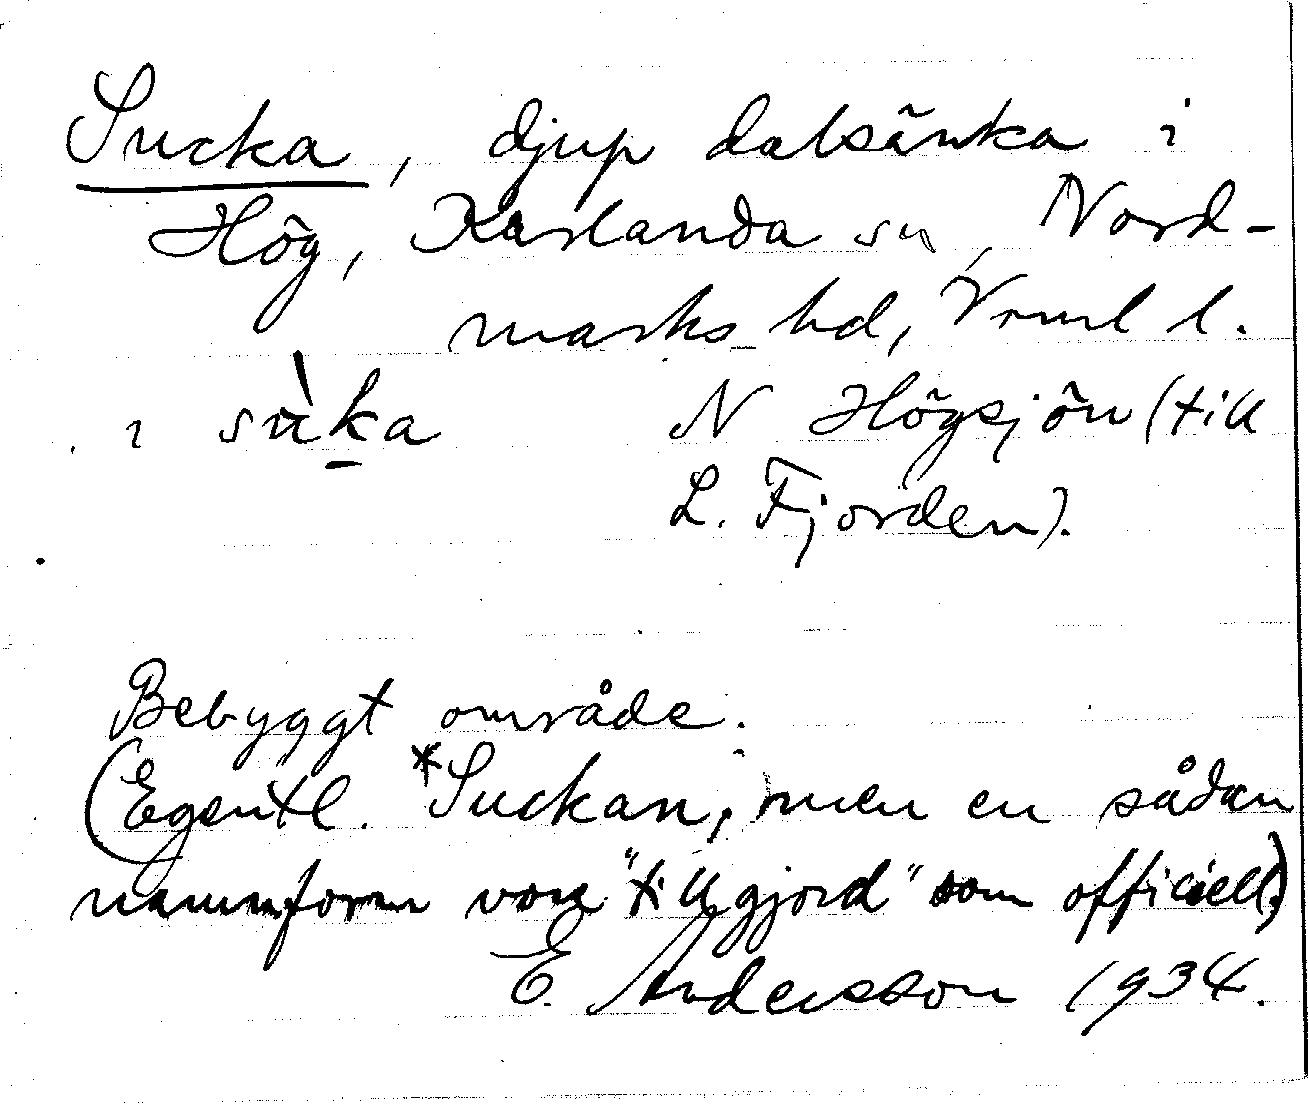 Sucka, djup dalsänka i
Hög, Karlanda sn, Nord-
marks hd, Vrml l.
i sùka N Högsjön (till
L. Fjorden).
Bebyggt område.
(Egentl. *Suckan, men en sådan
namnform vore "tillgjord" som officiell)
E. Andersson 1934.